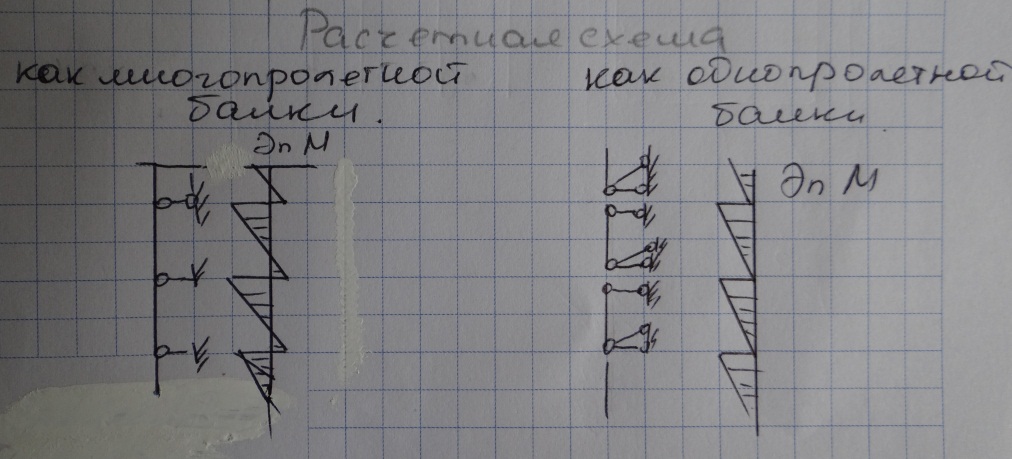 Расчетная схема
как многопролетной
балки.
Эп М
как однопролетной
балки
Эп М